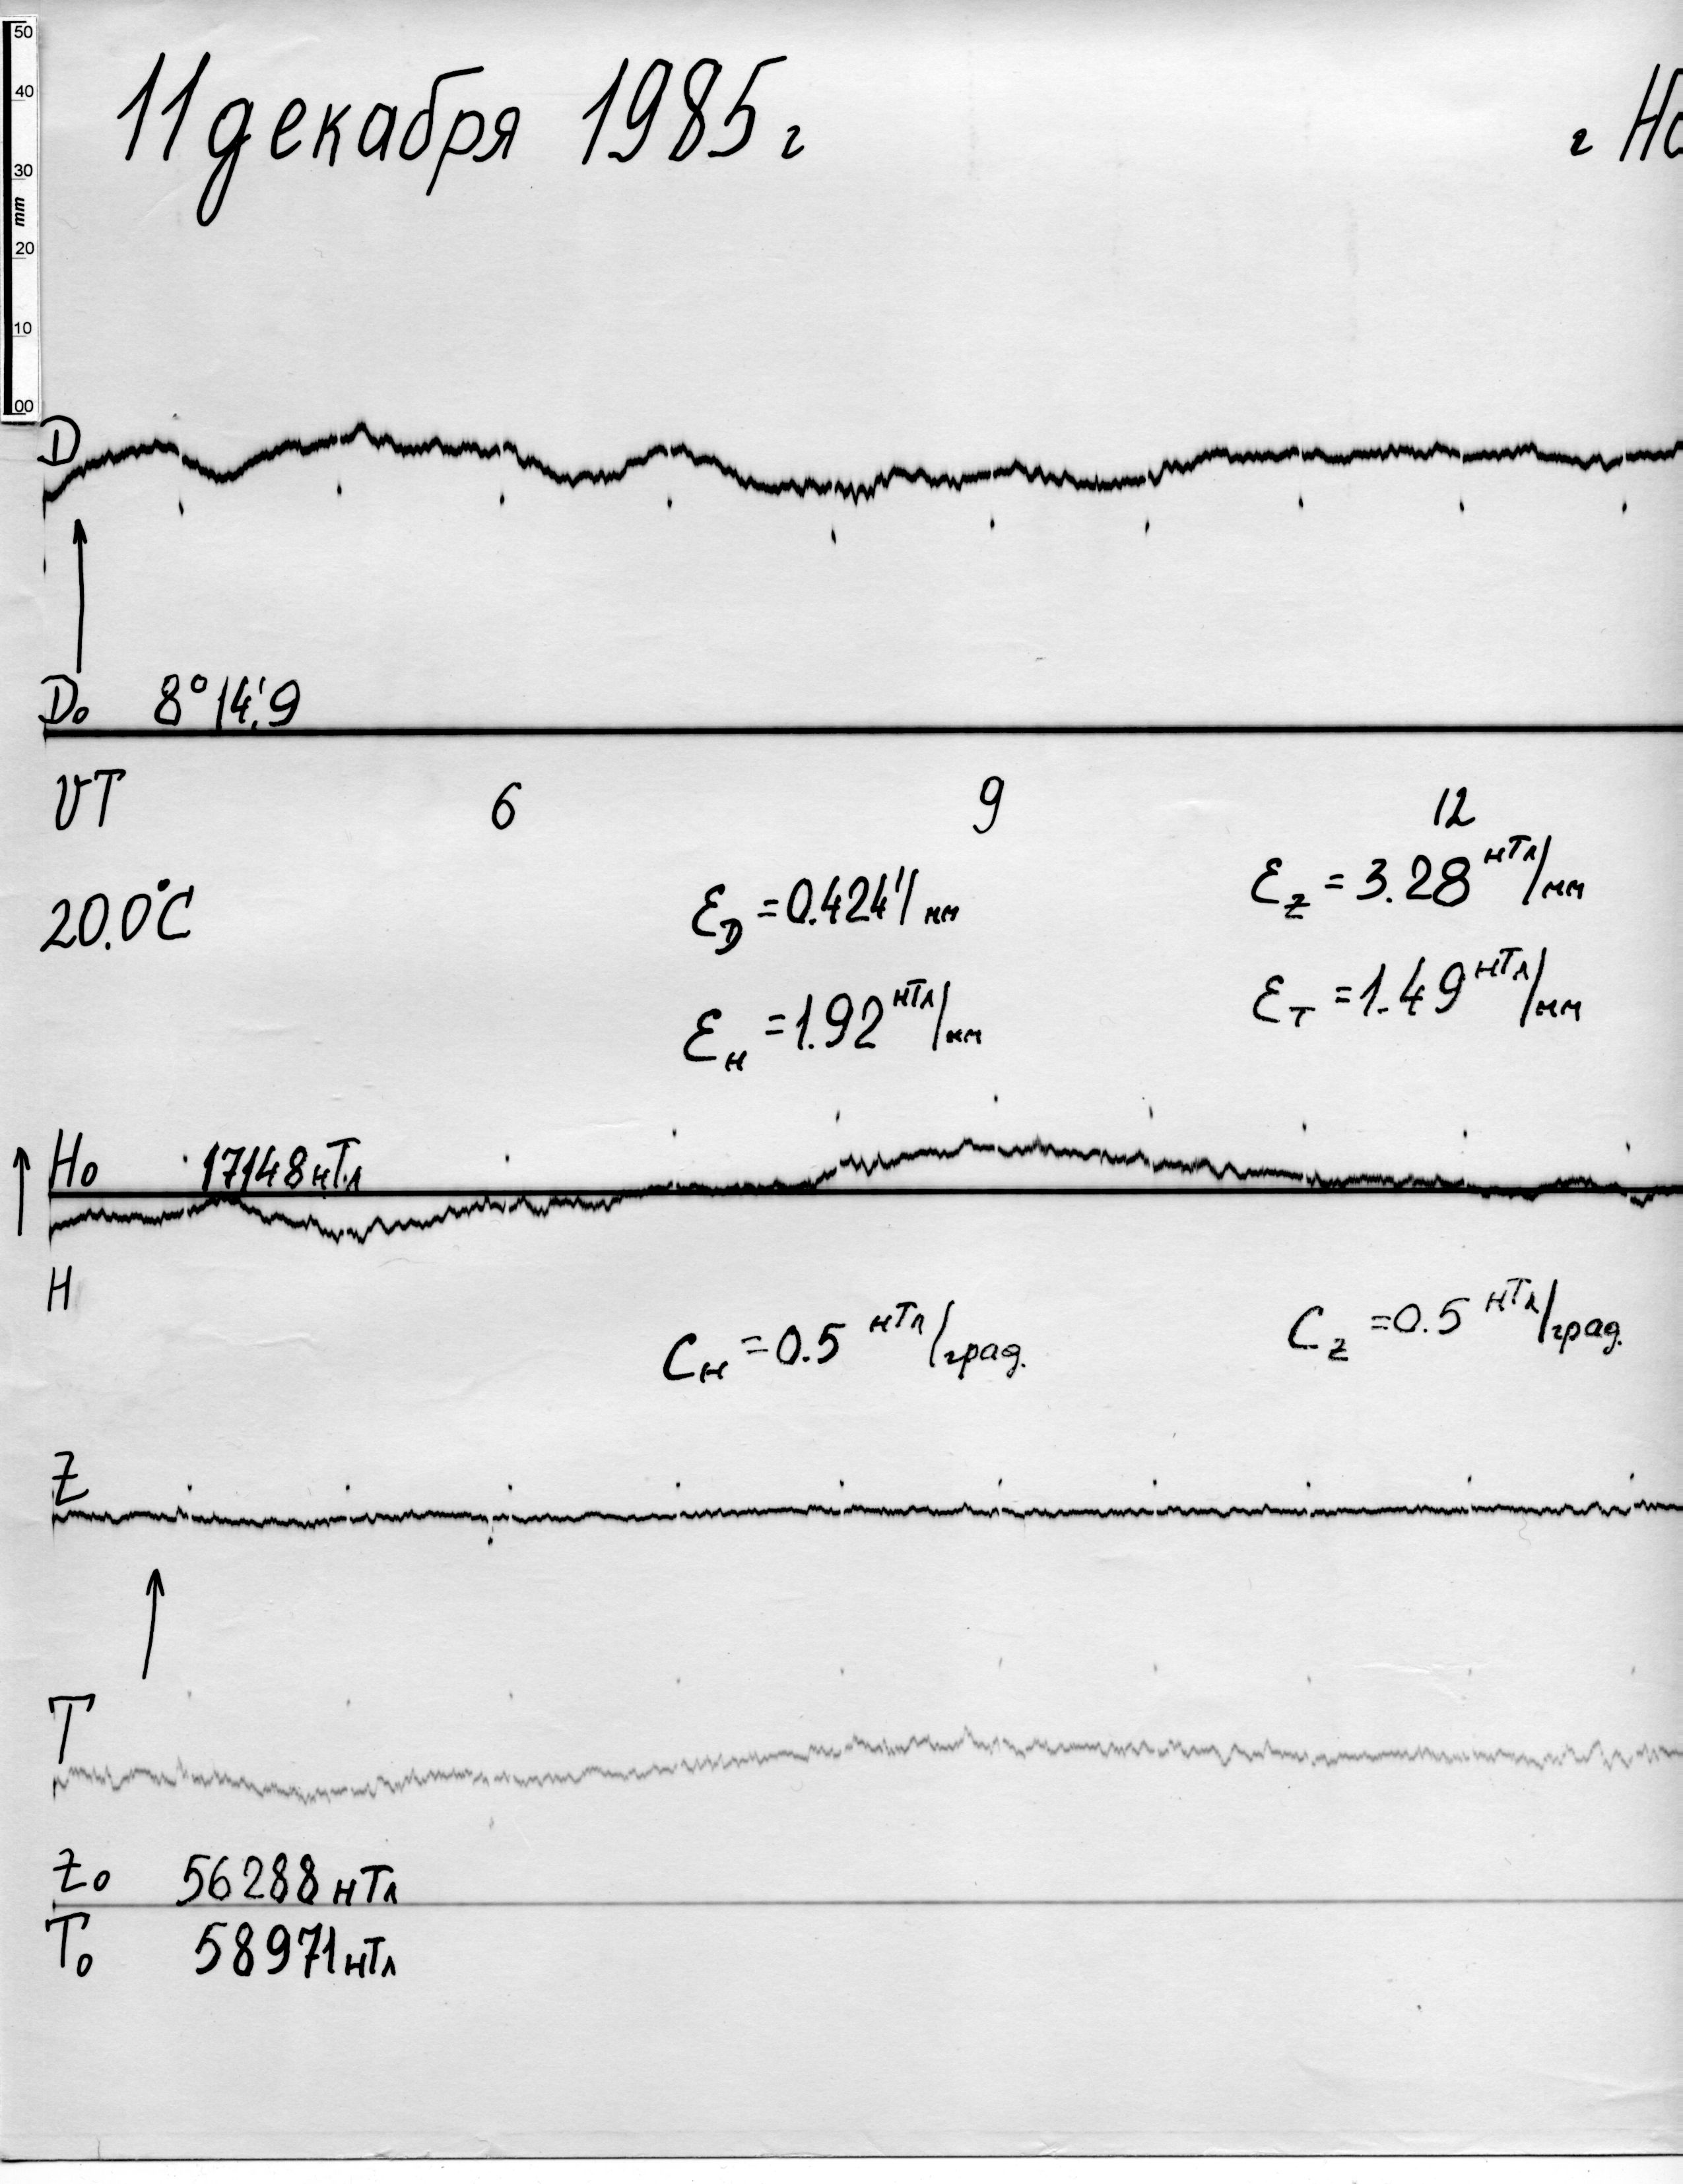 50
40
30
mm
20
10
00
11 декабря 1985 г
г
D
D₀ 8°14'.9
UT 6 9 12
20.0°C
ε_D = 0.424'/мм
ε_Z = 3.28 нТл/мм
ε_H = 1.92 нТл/мм
ε_T = 1.49 нТл/мм
H₀ 17148 нТл
H
C_H = 0.5 нТл/град.
C_Z = 0.5 нТл/град.
Z
T
Z₀ 56288 нТл
T₀ 58971 нТл